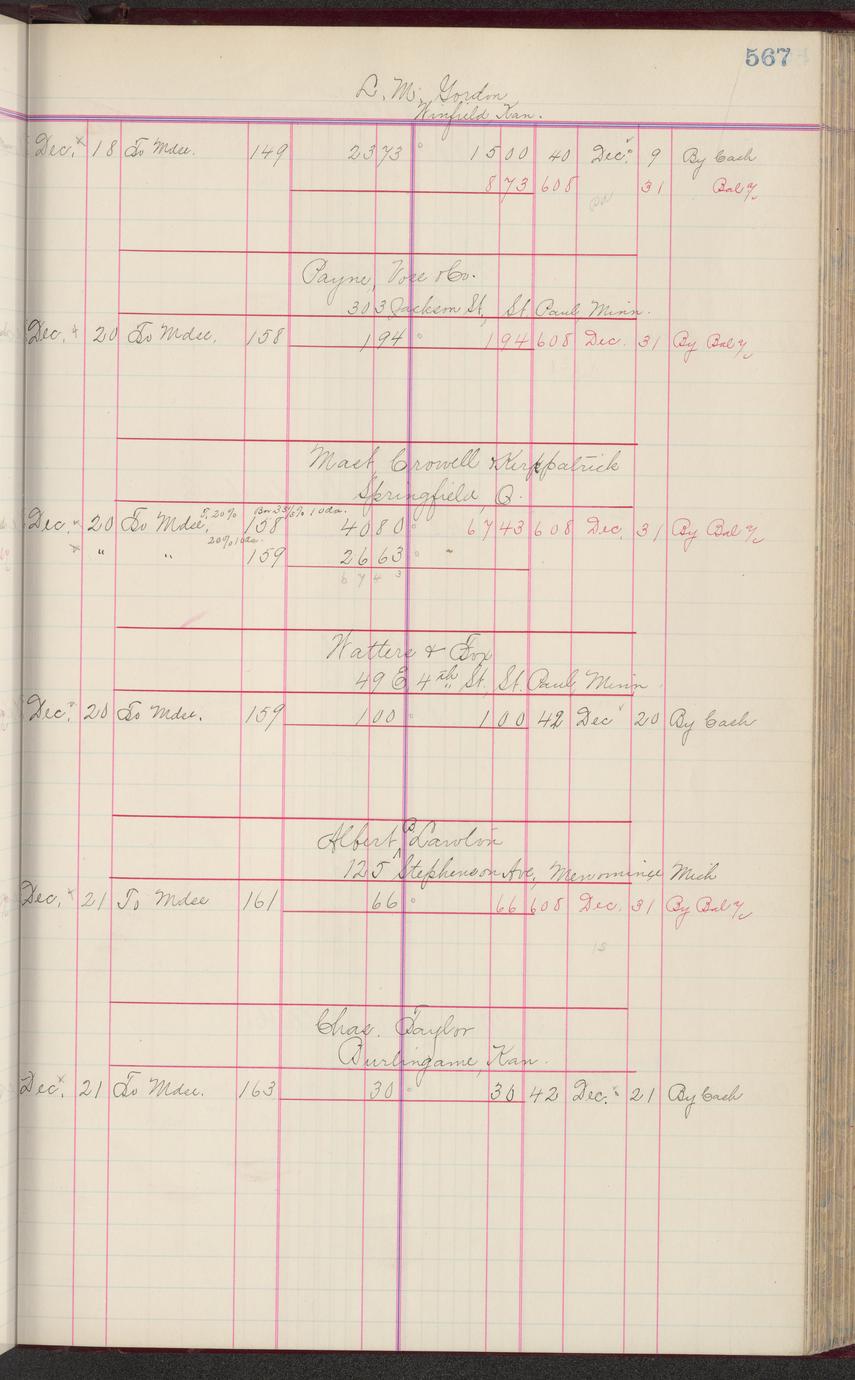 567
L. M. Gordon
Winfield Kan.
Dec. 18 To Mdse. 149 23 73 15 00 40 Dec. 9 By Cash
8 73 608 31 Bal %
Payne, Vose & Co.
303 Jackson St, St. Paul, Minn.
Dec. 20 To Mdse, 158 1 94 1 94 608 Dec. 31 By Bal %
Mast, Crowell & Kirkpatrick
Springfield, O.
5% 10da.
Dec. 20 To Mdse, 158 40 80 67 43 608 Dec. 31 By Bal %
20% 10da.
" " 159 26 63
67 43
Watters & Fox
49 E 4th St, St. Paul, Minn.
Dec. 20 To Mdse. 159 1 00 1 00 42 Dec 20 By Cash
Albert Lawton
125 Stephenson Ave, Menominee Mich
Dec. 21 To Mdse 161 66 66 608 Dec. 31 By Bal %
15
Chas. Taylor
Burlingame, Kan.
Dec. 21 To Mdse. 163 30 30 42 Dec. 21 By Cash